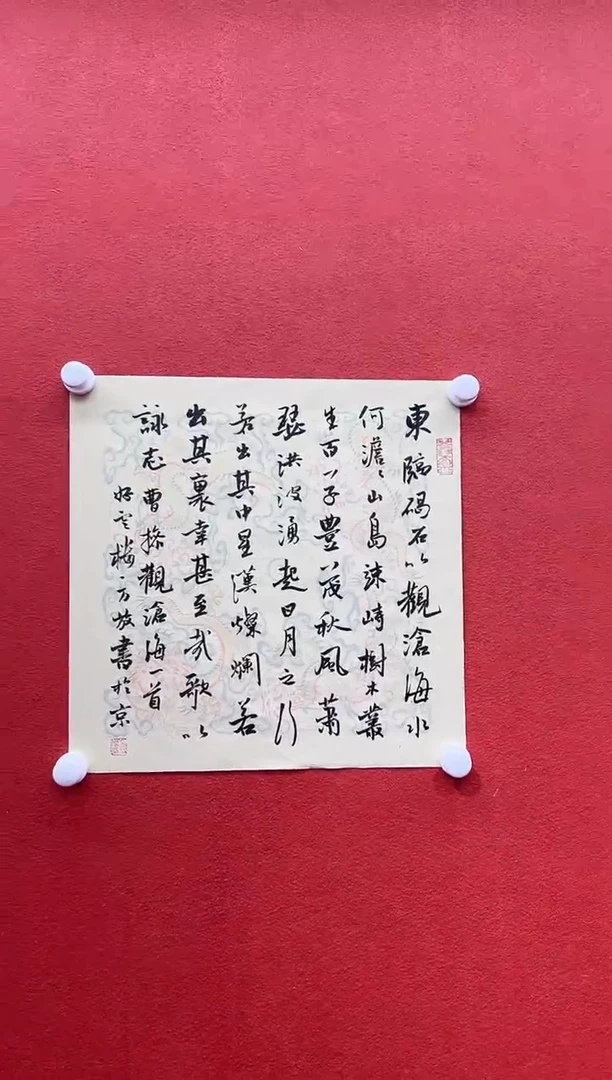 東臨碣石以觀滄海水
何澹〻山島竦峙樹木叢
生百草豐茂秋風蕭
瑟洪波湧起日月之行
若出其中星漢燦爛若
出其裏幸甚至哉歌以
詠志曹操觀滄海一首
書於京